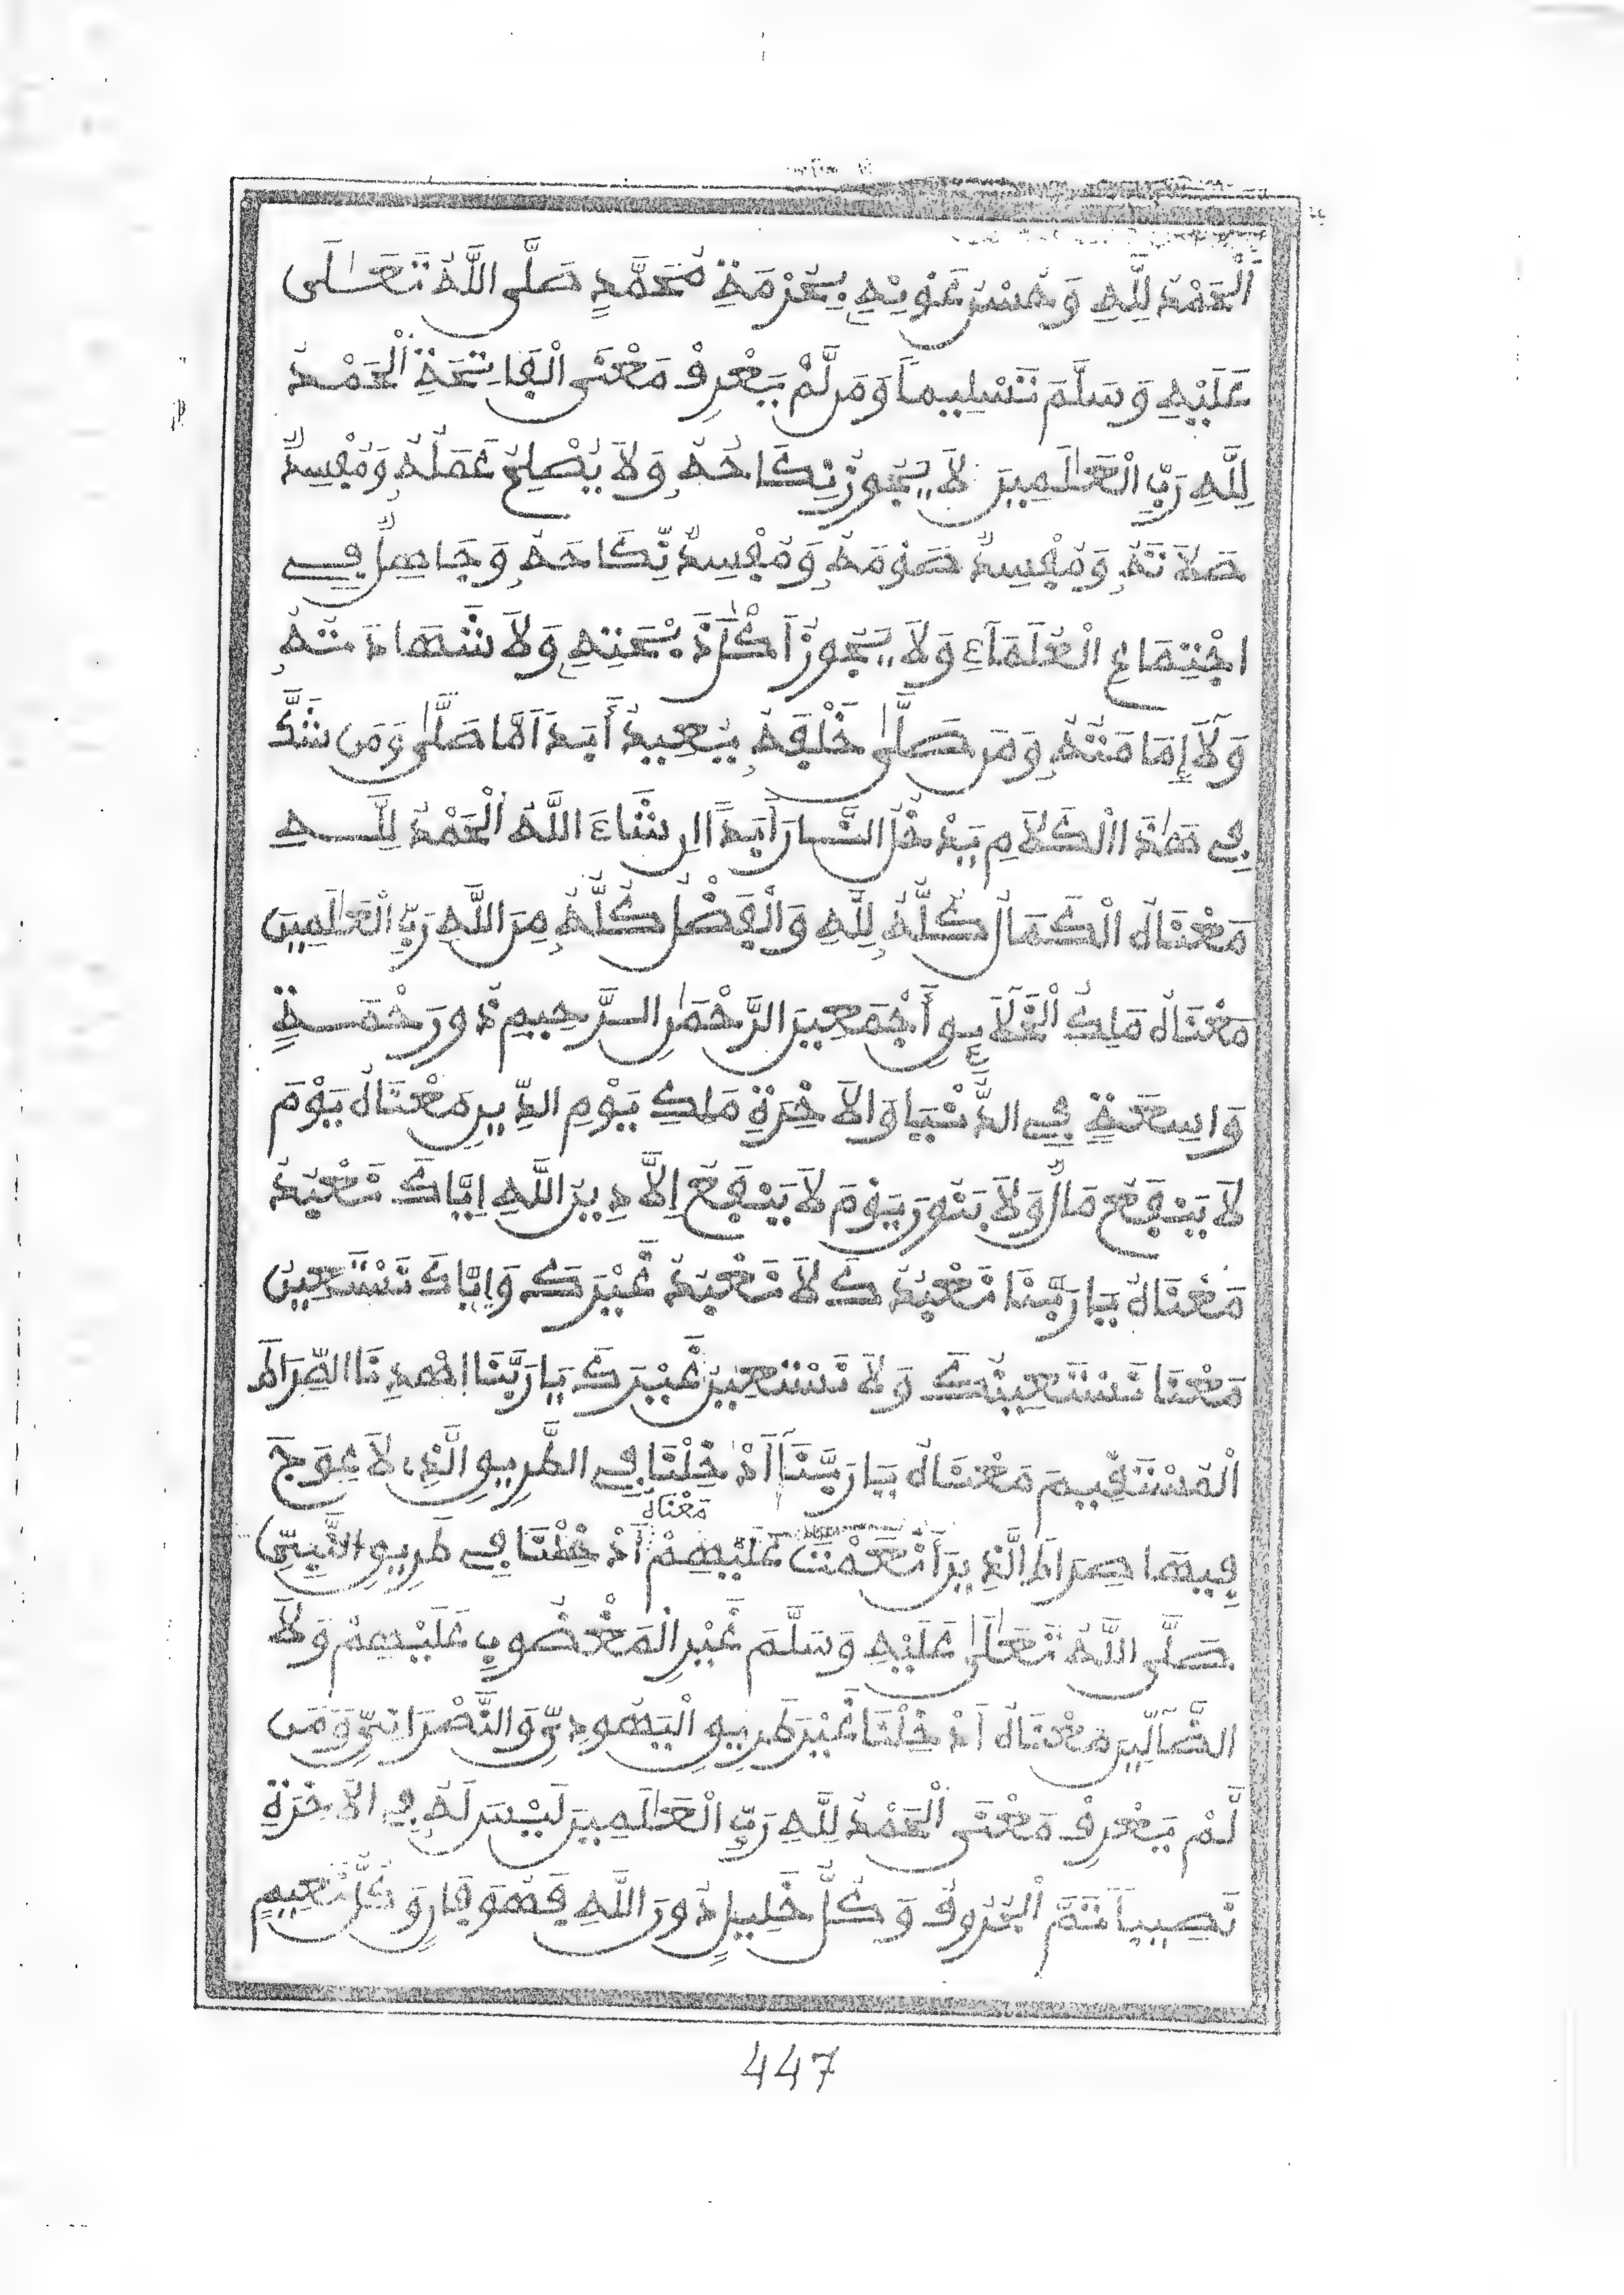 اَلْحَمْدُ لِلَّهِ وَحُسْنِ عَوْنِهِ بِحُرْمَةِ مُحَمَّدٍ صَلَّى اللَّهُ تَعَـٰلَى
عَلَيْهِ وَسَلَّمَ تَسْلِيماً وَمَن لَّمْ يَعْرِفْ مَعْنَى الْفَاتِحَةِ اَلْحَمْدُ
لِلَّهِ رَبِّ الْعَـٰلَمِينَ لاَ يَجُوزُ نِكَاحُهُ وَلاَ يُصْلِحُ عَمَلُهُ وَمُفْسِدٌ
صَلاَتَهُ وَمُفْسِدٌ صَوْمَهُ وَمُفْسِدٌ نِّكَاحَهُ وَجَاهِلٌ فِي
اجْتِمَاعِ الْعُلَمَآءِ وَلاَ يَجُوزُ أَكْلُ ذَبِيحَتِهِ وَلاَ شَهَادَتُهُ
وَلاَ إِمَامَتُهُ وَمَن صَلَّىٰ خَلْفَهُ يُعِيدُ أَبَداً مَّا صَلَّىٰ وَمَن شَكَّ
فِي هَـٰذَا الْكَلاَمِ يَدْخُلُ النَّارَ أَبَداً اِن شَاءَ اللَّهُ اَلْحَمْدُ لِلَّـهِ
مَعْنَاهُ الْكَمَالُ كُلُّهُ لِلَّهِ وَالْفَضْلُ كُلُّهُ مِنَ اللَّهِ رَبِّ الْعَـٰلَمِينَ
مَعْنَاهُ مَلِكُ الْخَلاَيِقِ أَجْمَعِينَ الرَّحْمَـٰنِ الرَّحِيمِ ذُو رَحْمَـةٍ
وَاسِعَةٍ فِي الدُّنْيَا وَالاَخِرَةِ مَلِكِ يَوْمِ الدِّينِ مَعْنَاهُ يَوْمَ
لاَ يَنْفَعُ مَالٌ وَلاَ بَنُونَ يَوْمَ لاَ يَنْفَعُ إِلاَّ دِينَ اللَّهِ إِيَّاكَ نَعْبُدُ
مَعْنَاهُ يَا رَبَّنَا نَعْبُدُكَ لاَ نَعْبُدُ غَيْرَكَ وَإِيَّاكَ نَسْتَعِينُ
مَعْنَا نَسْتَعِينُكَ وَلاَ نَسْتَعِينُ غَيْرَكَ يَا رَبَّنَا اهْدِنَا الصِّرَاطَ
الْمُسْتَقِيمَ مَعْنَاهُ يَا رَبَّنَا أَدْخِلْنَا فِي الطَّرِيقِ الَّذِي لاَ عِوَجَ
فِيهَا صِرَاطَ الَّذِينَ أَنْعَمْتَ عَلَيْهِمْ مَعْنَاهُ أَدْخِلْنَا فِي طَرِيقِ النَّبِيِّ
صَلَّى اللَّهُ تَعَـٰلَىٰ عَلَيْهِ وَسَلَّمَ غَيْرِ الْمَغْضُوبِ عَلَيْهِمْ وَلاَ
الضَّآلِّينَ مَعْنَاهُ أَدْخِلْنَا غَيْرَ طَرِيقِ الْيَهُودِيِّ وَالنَّصْرَانِيِّ وَمَن
لَّمْ يَعْرِفْ مَعْنَى اَلْحَمْدُ لِلَّهِ رَبِّ الْعَـٰلَمِينَ لَيْسَ لَهُ فِي الاَخِرَةِ
نَصِيباً تَمَّ الْحُرُوفُ وَكُلُّ خَلِيلٍ دُونَ اللَّهِ فَهُوَ فَانٍ وَكُلُّ نَعِيمٍ
447